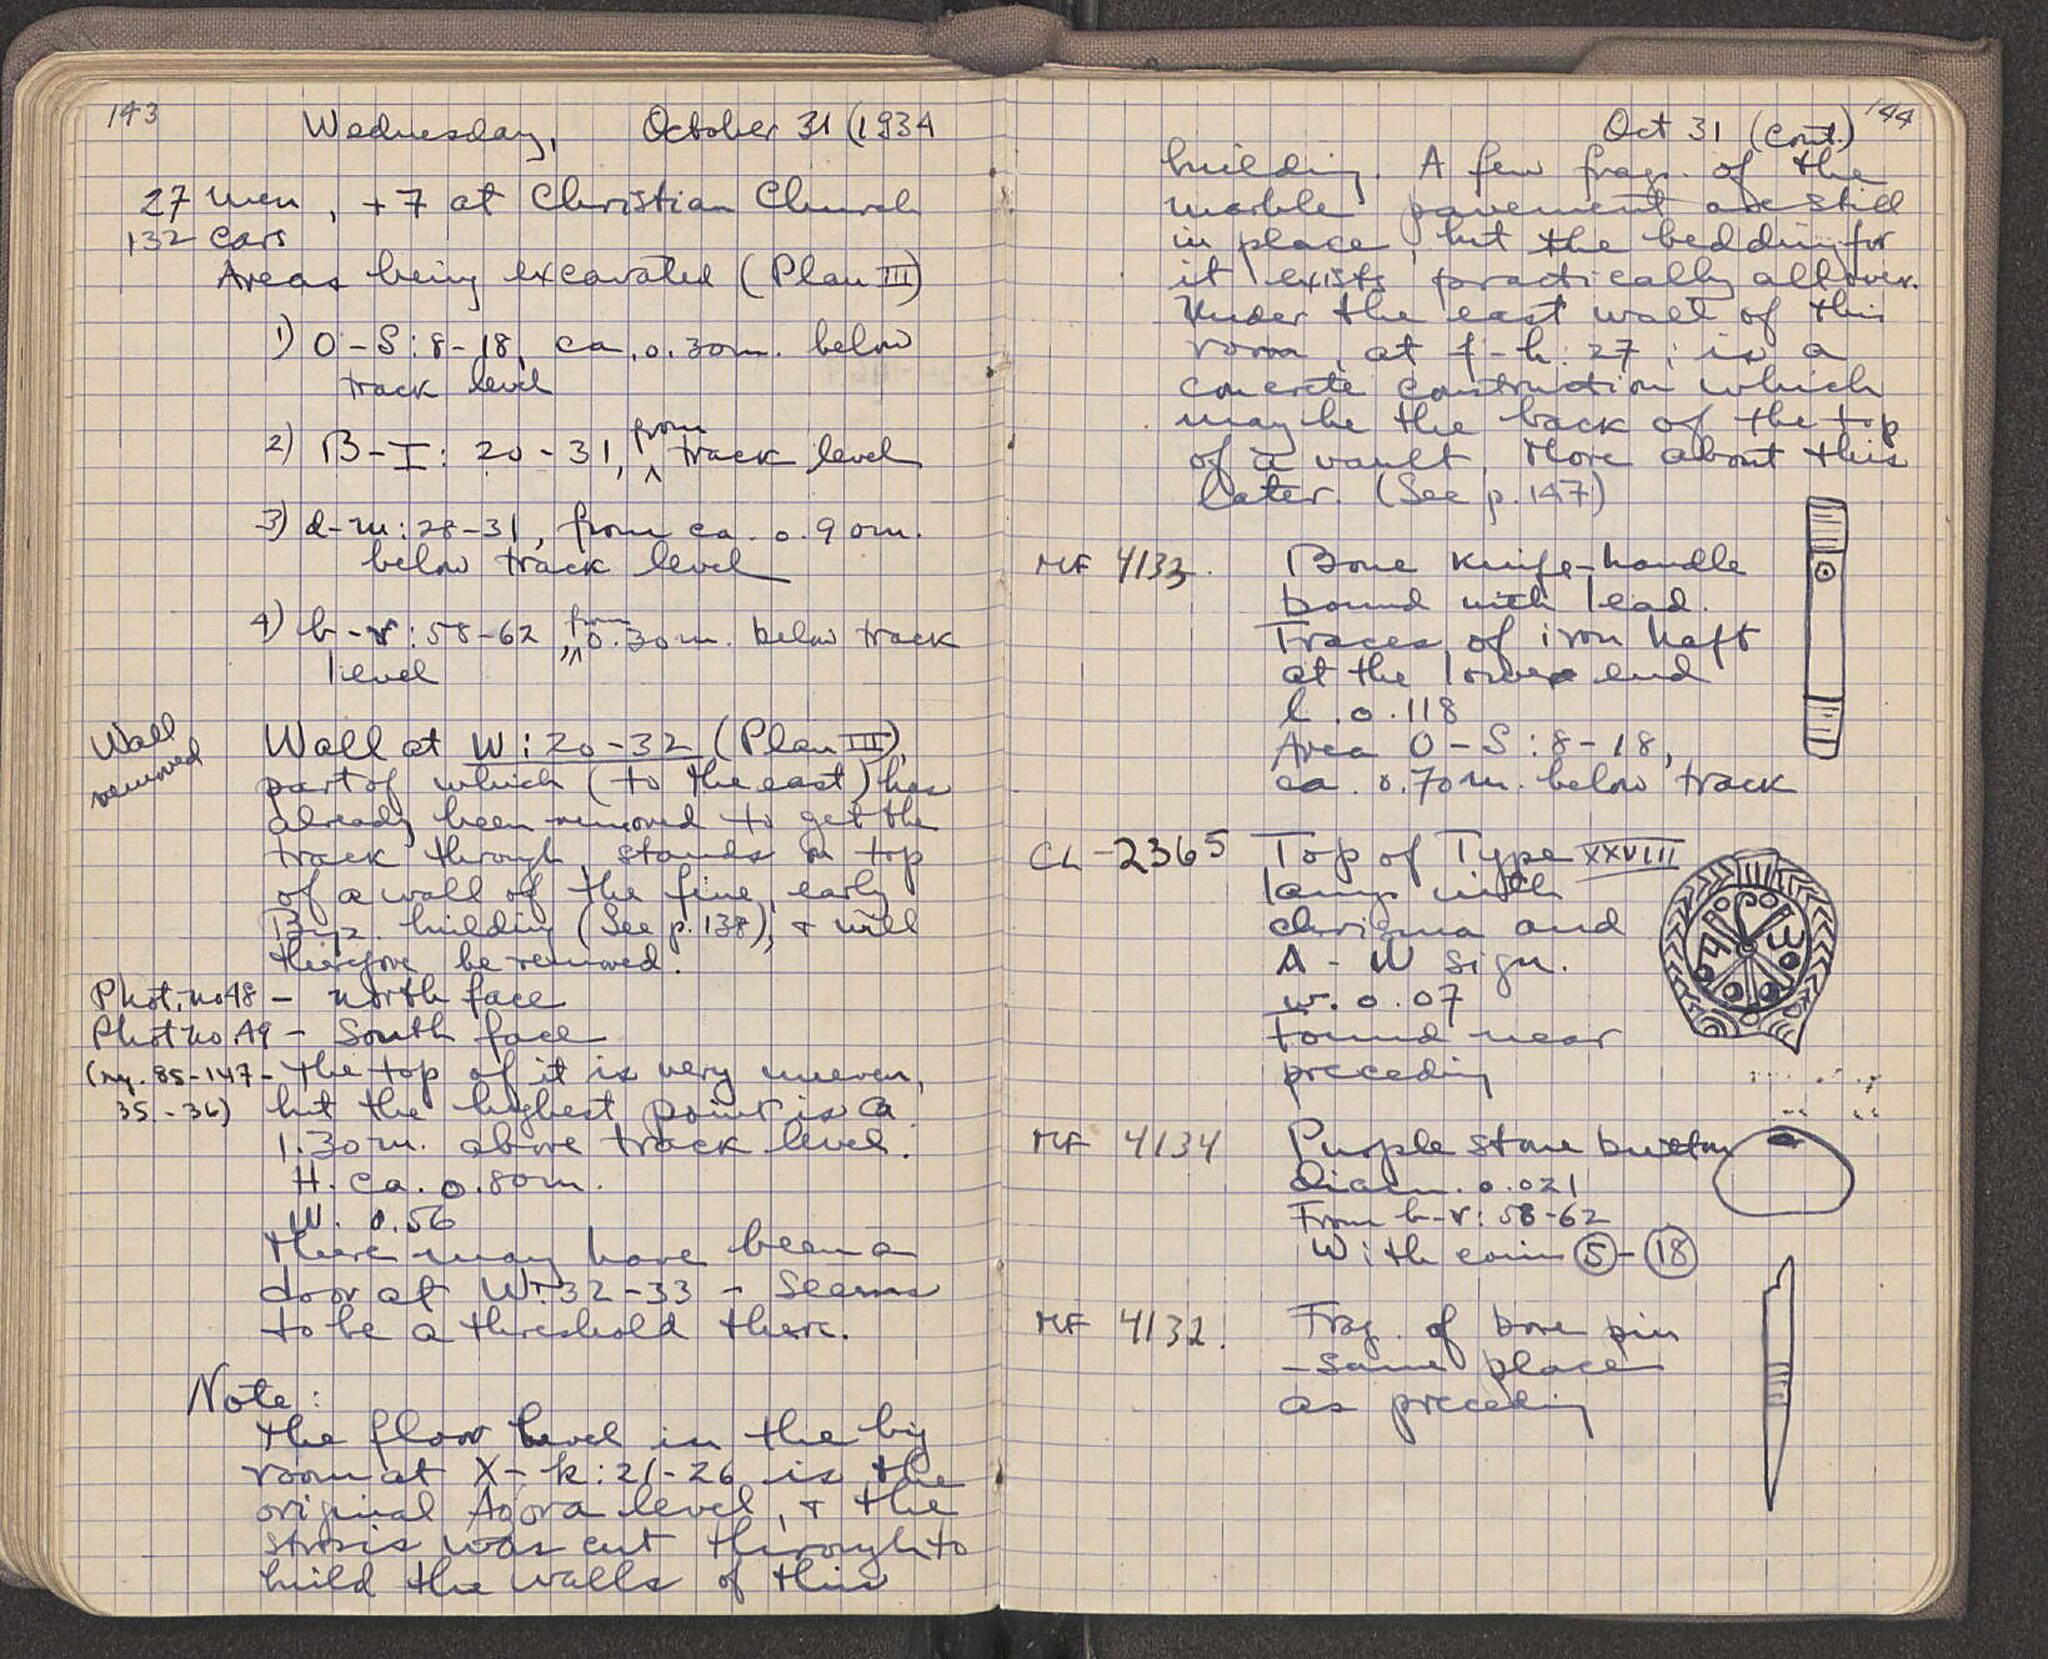 143
Wednesday, October 31 (1934
27 men, +7 at Christian Church
132 cars
Areas being excavated (Plan III)
1) O-S: 8-18, ca. 0.30m. below
track level
2) B-I: 20-31, from track level
3) d-m: 28-31, from ca. 0.90m.
below track level
4) h-r: 58-62, from 0.30m. below track
level
Wall
removed
Wall at W: 20-32 (Plan III),
part of which (to the east) has
already been removed to get the
track through, stands on top
of a wall of the fine, early
Byz. building (See p. 138), + will
therefore be removed.
Phot. no 48 - north face
Phot no. 49 - South face
(ng. 85-147-
35-36)
the top of it is very uneven,
but the highest point is ca
1.30m. above track level.
H. ca. 0.80m.
W. 0.56
There may have been a
door at W: 32-33 - Seems
to be a threshold there.
Note:
the floor level in the big
room at X-k: 21-26 is the
original Agora level, + the
stosis was cut through to
build the walls of this
144
Oct 31 (cont.)
building. A few frags. of the
marble pavement are still
in place, but the bedding for
it exists practically all over.
Under the east wall of this
room, at f-h: 27, is a
concrete construction which
may be the back of the top
of a vault. More about this
later. (See p. 147)
MF 4133. Bone knife-handle
bound with lead.
Traces of iron haft
at the lower end
l. 0.118
Area O-S: 8-18,
ca. 0.70m. below track
CL-2365 Top of Type XXVIII
lamp with
chrisma and
A-W sign.
w. 0.07
Found near
preceding
MF 4134 Purple stone button
diam. 0.021
From h-r: 58-62
With coin 5-18
MF 4132. Frag. of bone pin
-same place
as preceding